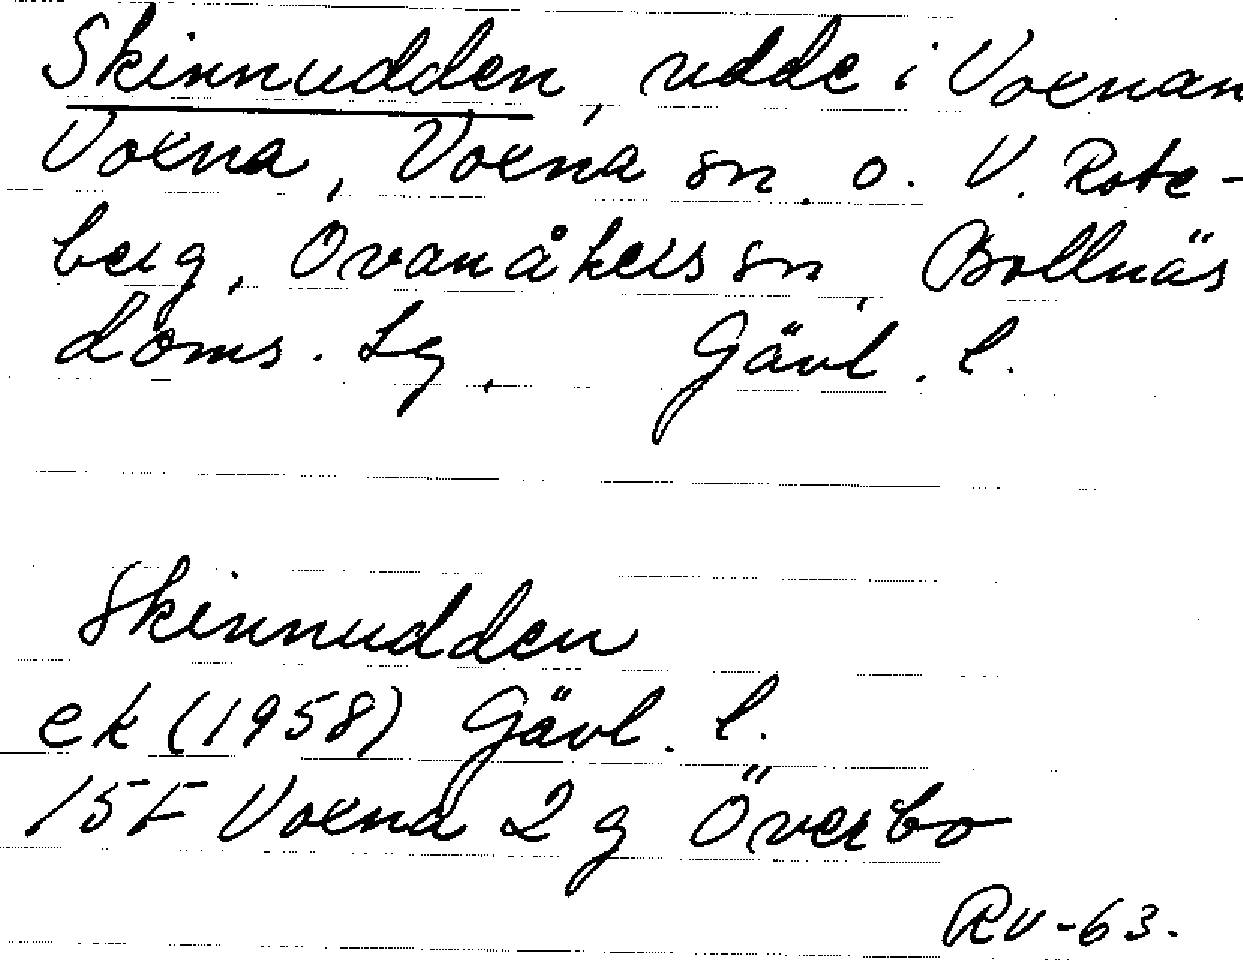 Skinnudden, udde i Voxnan
Voxna, Voxna sn, o. V. Rote-
berg, Ovanåkers sn, Bollnäs
doms. lg, Gävl. l.
Skinnudden
ek (1958) Gävl. l.
15F Voxna 2 g Överbo
RV-63.